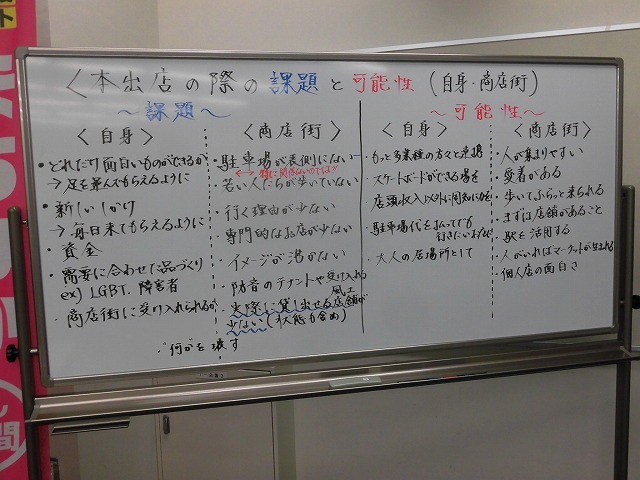 ＜本出店の際の課題と可能性（自身・商店街）
～課題～
＜自身＞
・どれだけ面白いものができるか
→足を運んでもらえるように
・新しいしかけ
→毎日来てもらえるように
・資金
・需要に合わせた品づくり
ex) LGBT、障害者
・商店街に受け入れられるか
＜商店街＞
・駐車場が表側にない
↔特に関係ないのでは!!
・若い人たちが歩いていない
・行く理由が少ない
・専門的なお店が少ない
・イメージが湧かない
・防音のテナントや受け入れる風土
・実際に貸し出せる店舗が
少ない（状態も含め）
∴何かを壊す
～可能性～
＜自身＞
・もっと多業種の方々と連携
・スケートボードができる場を
・店頭収入以外に
・駐車場代を払ってでも
行きたい
・大人の居場所として
＜商店街＞
・人が集まりやすい
・愛着がある
・歩いてふらっと来られる
・まずは店舗があること
・駅を活用する
・人がいればマーケットが生まれる
・個人店の面白さ
間